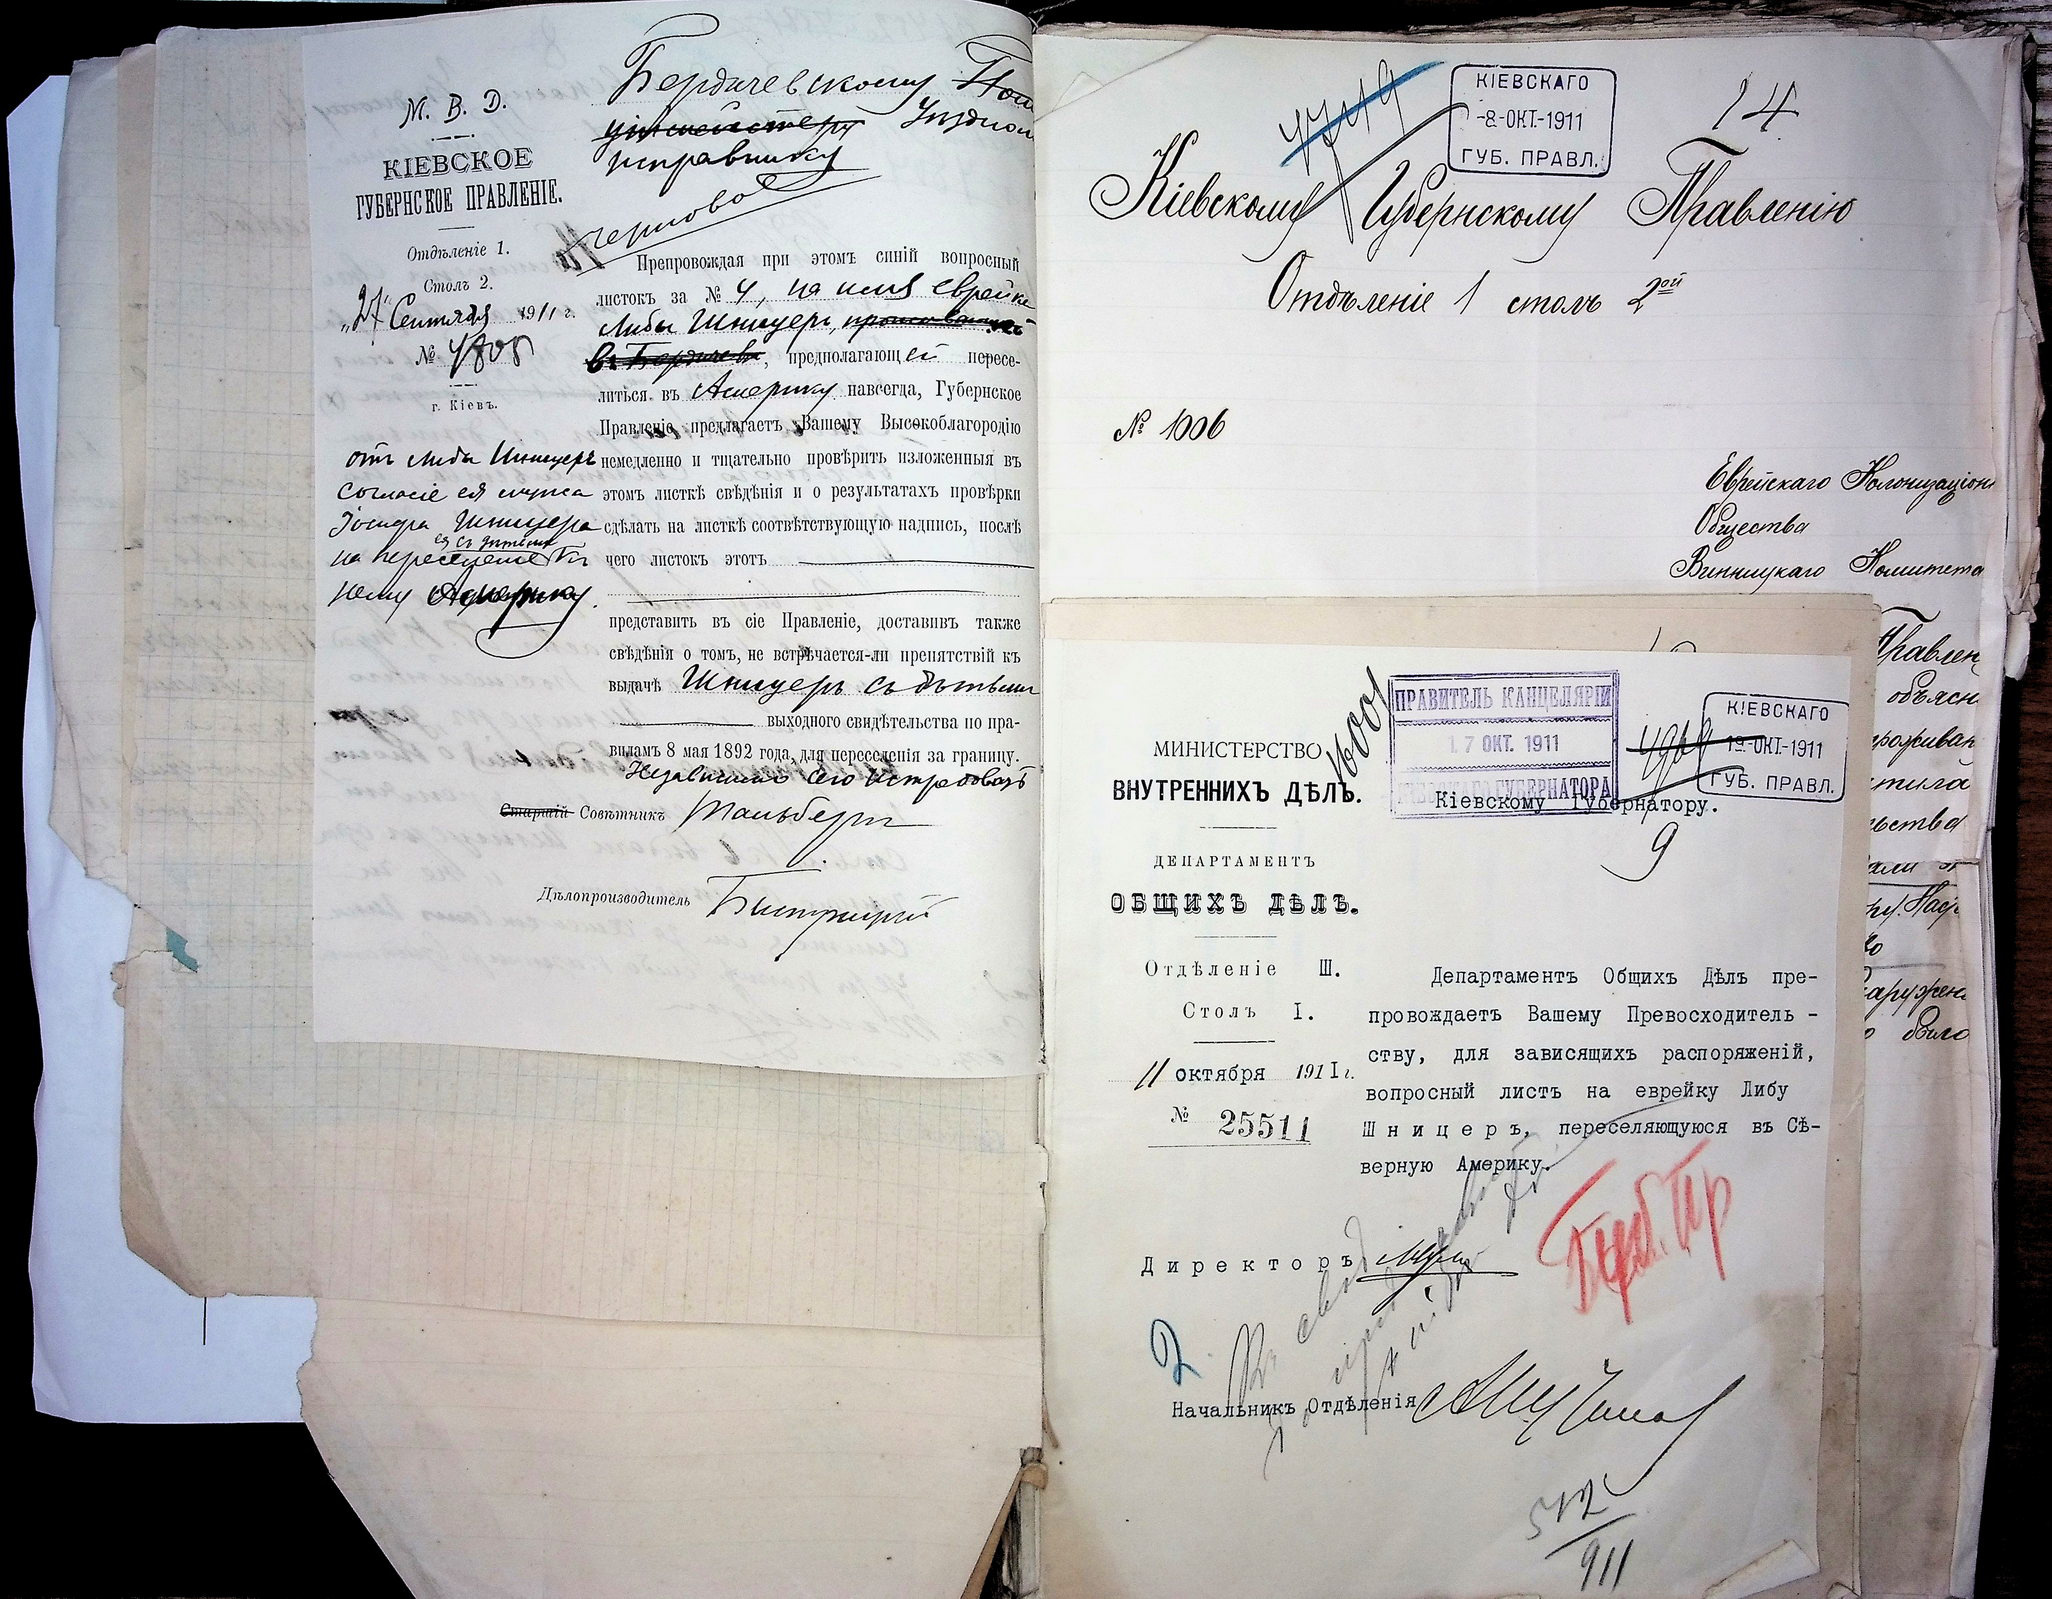 М. В. Д.
КІЕВСКОЕ
ГУБЕРНСКОЕ ПРАВЛЕНІЕ.
Отдѣленіе 1.
Столъ 2.
„27" Сентября 1911 г.
№ 4805
г. Кіевъ.
Бердичевскому
Уѣздном
исправнику
Препровождая при этомъ синій вопросный
листокъ за № 4, на имя еврейки
Либы Шницеръ,
въ Бердичевѣ, предполагающей пересе-
литься въ Америку навсегда, Губернское
Правленіе предлагаетъ Вашему Высокоблагородію
немедленно и тщательно провѣрить изложенныя въ
этомъ листкѣ свѣдѣнія и о результатахъ провѣрки
сдѣлать на листкѣ соотвѣтствующую надпись, послѣ
чего листокъ этотъ
представить въ сіе Правленіе, доставивъ также
свѣдѣнія о томъ, не встрѣчается-ли препятствій къ
выдачѣ Шницеръ съ дѣтьми
выходного свидѣтельства по пра-
виламъ 8 мая 1892 года, для переселенія за границу.
отъ Либы Шницеръ
согласіе ея мужа
Іосифа Шницера
на переселеніе
ея съ дѣтьми
къ нему
Старшій Совѣтникъ
Дѣлопроизводитель
КІЕВСКАГО
-8-ОКТ.-1911
ГУБ. ПРАВЛ.
14
Кіевскому Губернскому Правленію
Отдѣленіе 1 столъ 2ой
№ 1006
Еврейскаго Колонизаціон
Общества
Винницкаго Комитета
Правлен
объясн
16001
ПРАВИТЕЛЬ КАНЦЕЛЯРІИ
17 ОКТ. 1911
ГУБЕРНАТОРА
КІЕВСКАГО
19-ОКТ-1911
ГУБ. ПРАВЛ.
МИНИСТЕРСТВО
ВНУТРЕННИХЪ ДѢЛЪ.
Кіевскому Губернатору.
9
ДЕПАРТАМЕНТЪ
ОБЩИХЪ ДѢЛЪ.
Отдѣленіе III.
Столъ I.
11 октября 1911 г.
№ 25511
Департаментъ Общихъ Дѣлъ пре-
провождаетъ Вашему Превосходитель-
ству, для зависящихъ распоряженій,
вопросный листъ на еврейку Либу
Шницеръ, переселяющуюся въ Сѣ-
верную Америку.
Директоръ
Начальникъ Отдѣленія
572
911